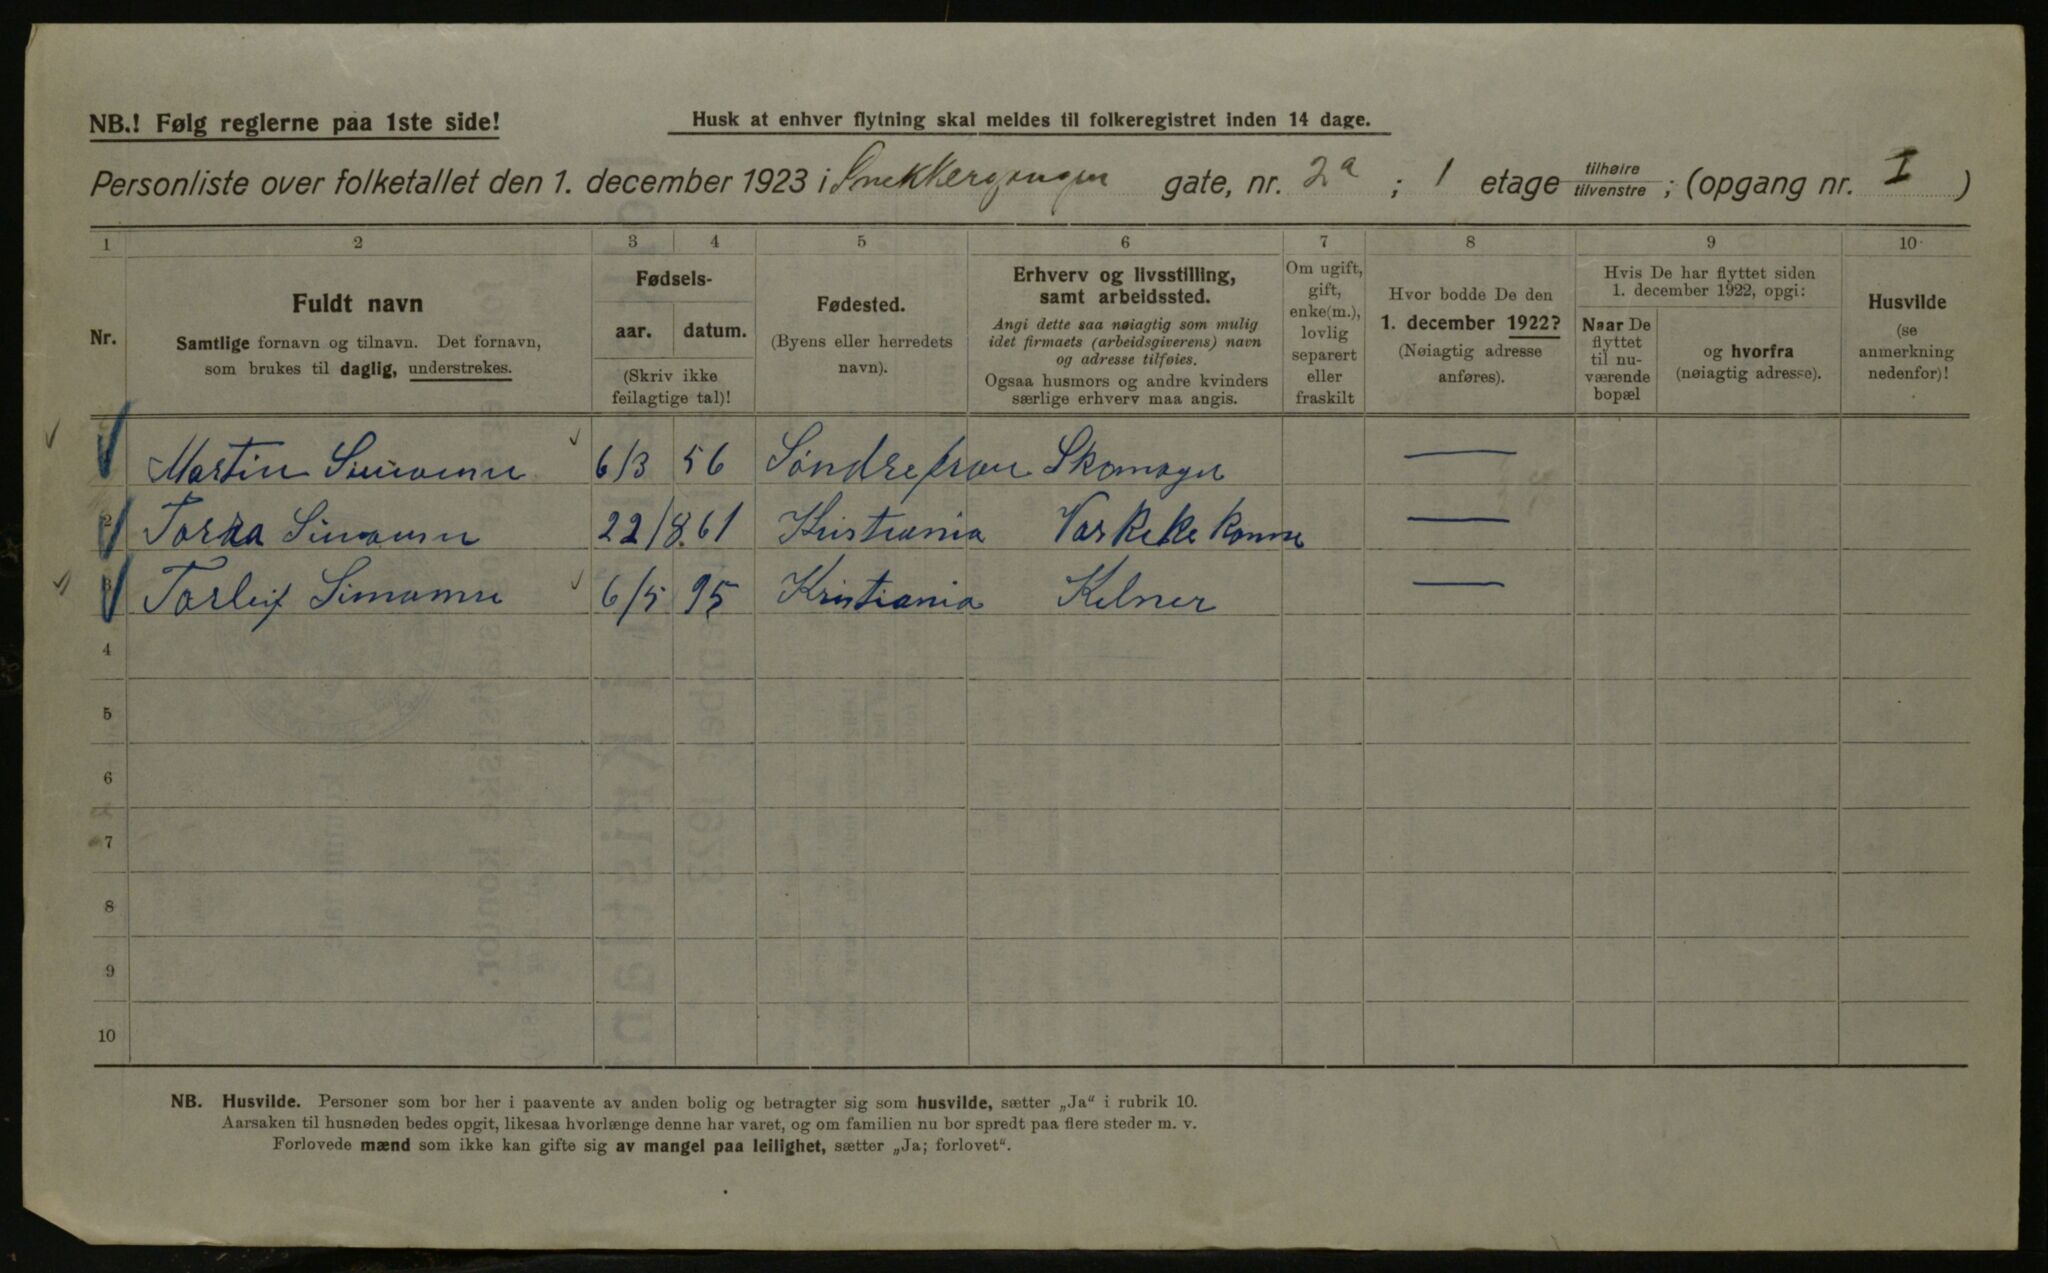 NB.! Følg reglerne paa 1ste side!
Husk at enhver flytning skal meldes til folkeregistret inden 14 dage.
Personliste over folketallet den 1. december 1923 i Snekkergangen gate, nr. 2a ; 1 etage tilhøire tilvenstre ; (opgang nr. I )
1 2 3 4 5 6 7 8 9 10
Nr.
Fuldt navn
Samtlige fornavn og tilnavn. Det fornavn,
som brukes til daglig, understrekes.
Fødsels-
aar. datum.
(Skriv ikke
feilagtige tal)!
Fødested.
(Byens eller herredets
navn).
Erhverv og livsstilling,
samt arbeidssted.
Angi dette saa nøiagtig som mulig
idet firmaets (arbeidsgiverens) navn
og adresse tilføies.
Ogsaa husmors og andre kvinders
særlige erhverv maa angis.
Om ugift,
gift,
enke(m.),
lovlig
separert
eller
fraskilt
Hvor bodde De den
1. december 1922?
(Nøiagtig adresse
anføres).
Hvis De har flyttet siden
1. december 1922, opgi:
Naar De
flyttet
til nu-
værende
bopæl
og hvorfra
(nøiagtig adresse).
Husvilde
(se
anmerkning
nedenfor)!
Martin 6/3 56 Søndre Skomager —
2 22/8.61 Kristiania —
3 Torleif 6/5 95 Kristiania Kelner —
4
5
6
7
8
9
10
NB. Husvilde. Personer som bor her i paavente av anden bolig og betragter sig som husvilde, sætter „Ja“ i rubrik 10.
Aarsaken til husnøden bedes opgit, likesaa hvorlænge denne har varet, og om familien nu bor spredt paa flere steder m. v.
Forlovede mænd som ikke kan gifte sig av mangel paa leilighet, sætter „Ja; forlovet“.